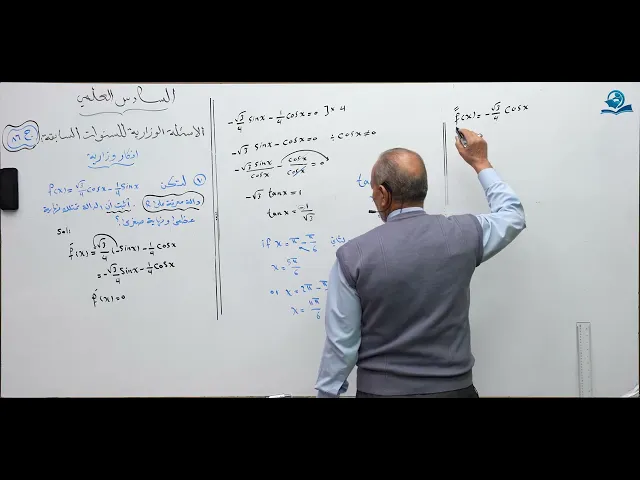 السادس العلمي
الاسئلة الوزارية للسنوات السابقة
ح ٨٦
افكار وزارية
٧ لتكن f(x) = √3/4 cosx - 1/4 sinx
دالة معرفة على R. أثبت أن الدالة تمتلك نهاية
عظمى ونهاية صغرى؟
Sol:
f′(x) = √3/4 (-sinx) - 1/4 cosx
= -√3/4 sinx - 1/4 cosx
f′(x) = 0
-√3/4 sinx - 1/4 cosx = 0 ] × 4
-√3 sinx - cosx = 0 ÷ cosx ≠ 0
-√3 sinx/cosx - cosx/cosx = 0
-√3 tanx = 1
tanx = -1/√3
if x = π - π/6
x = 5π/6
or x = 2π - π
x = 11π/6
f″(x) = -√3/4 cosx